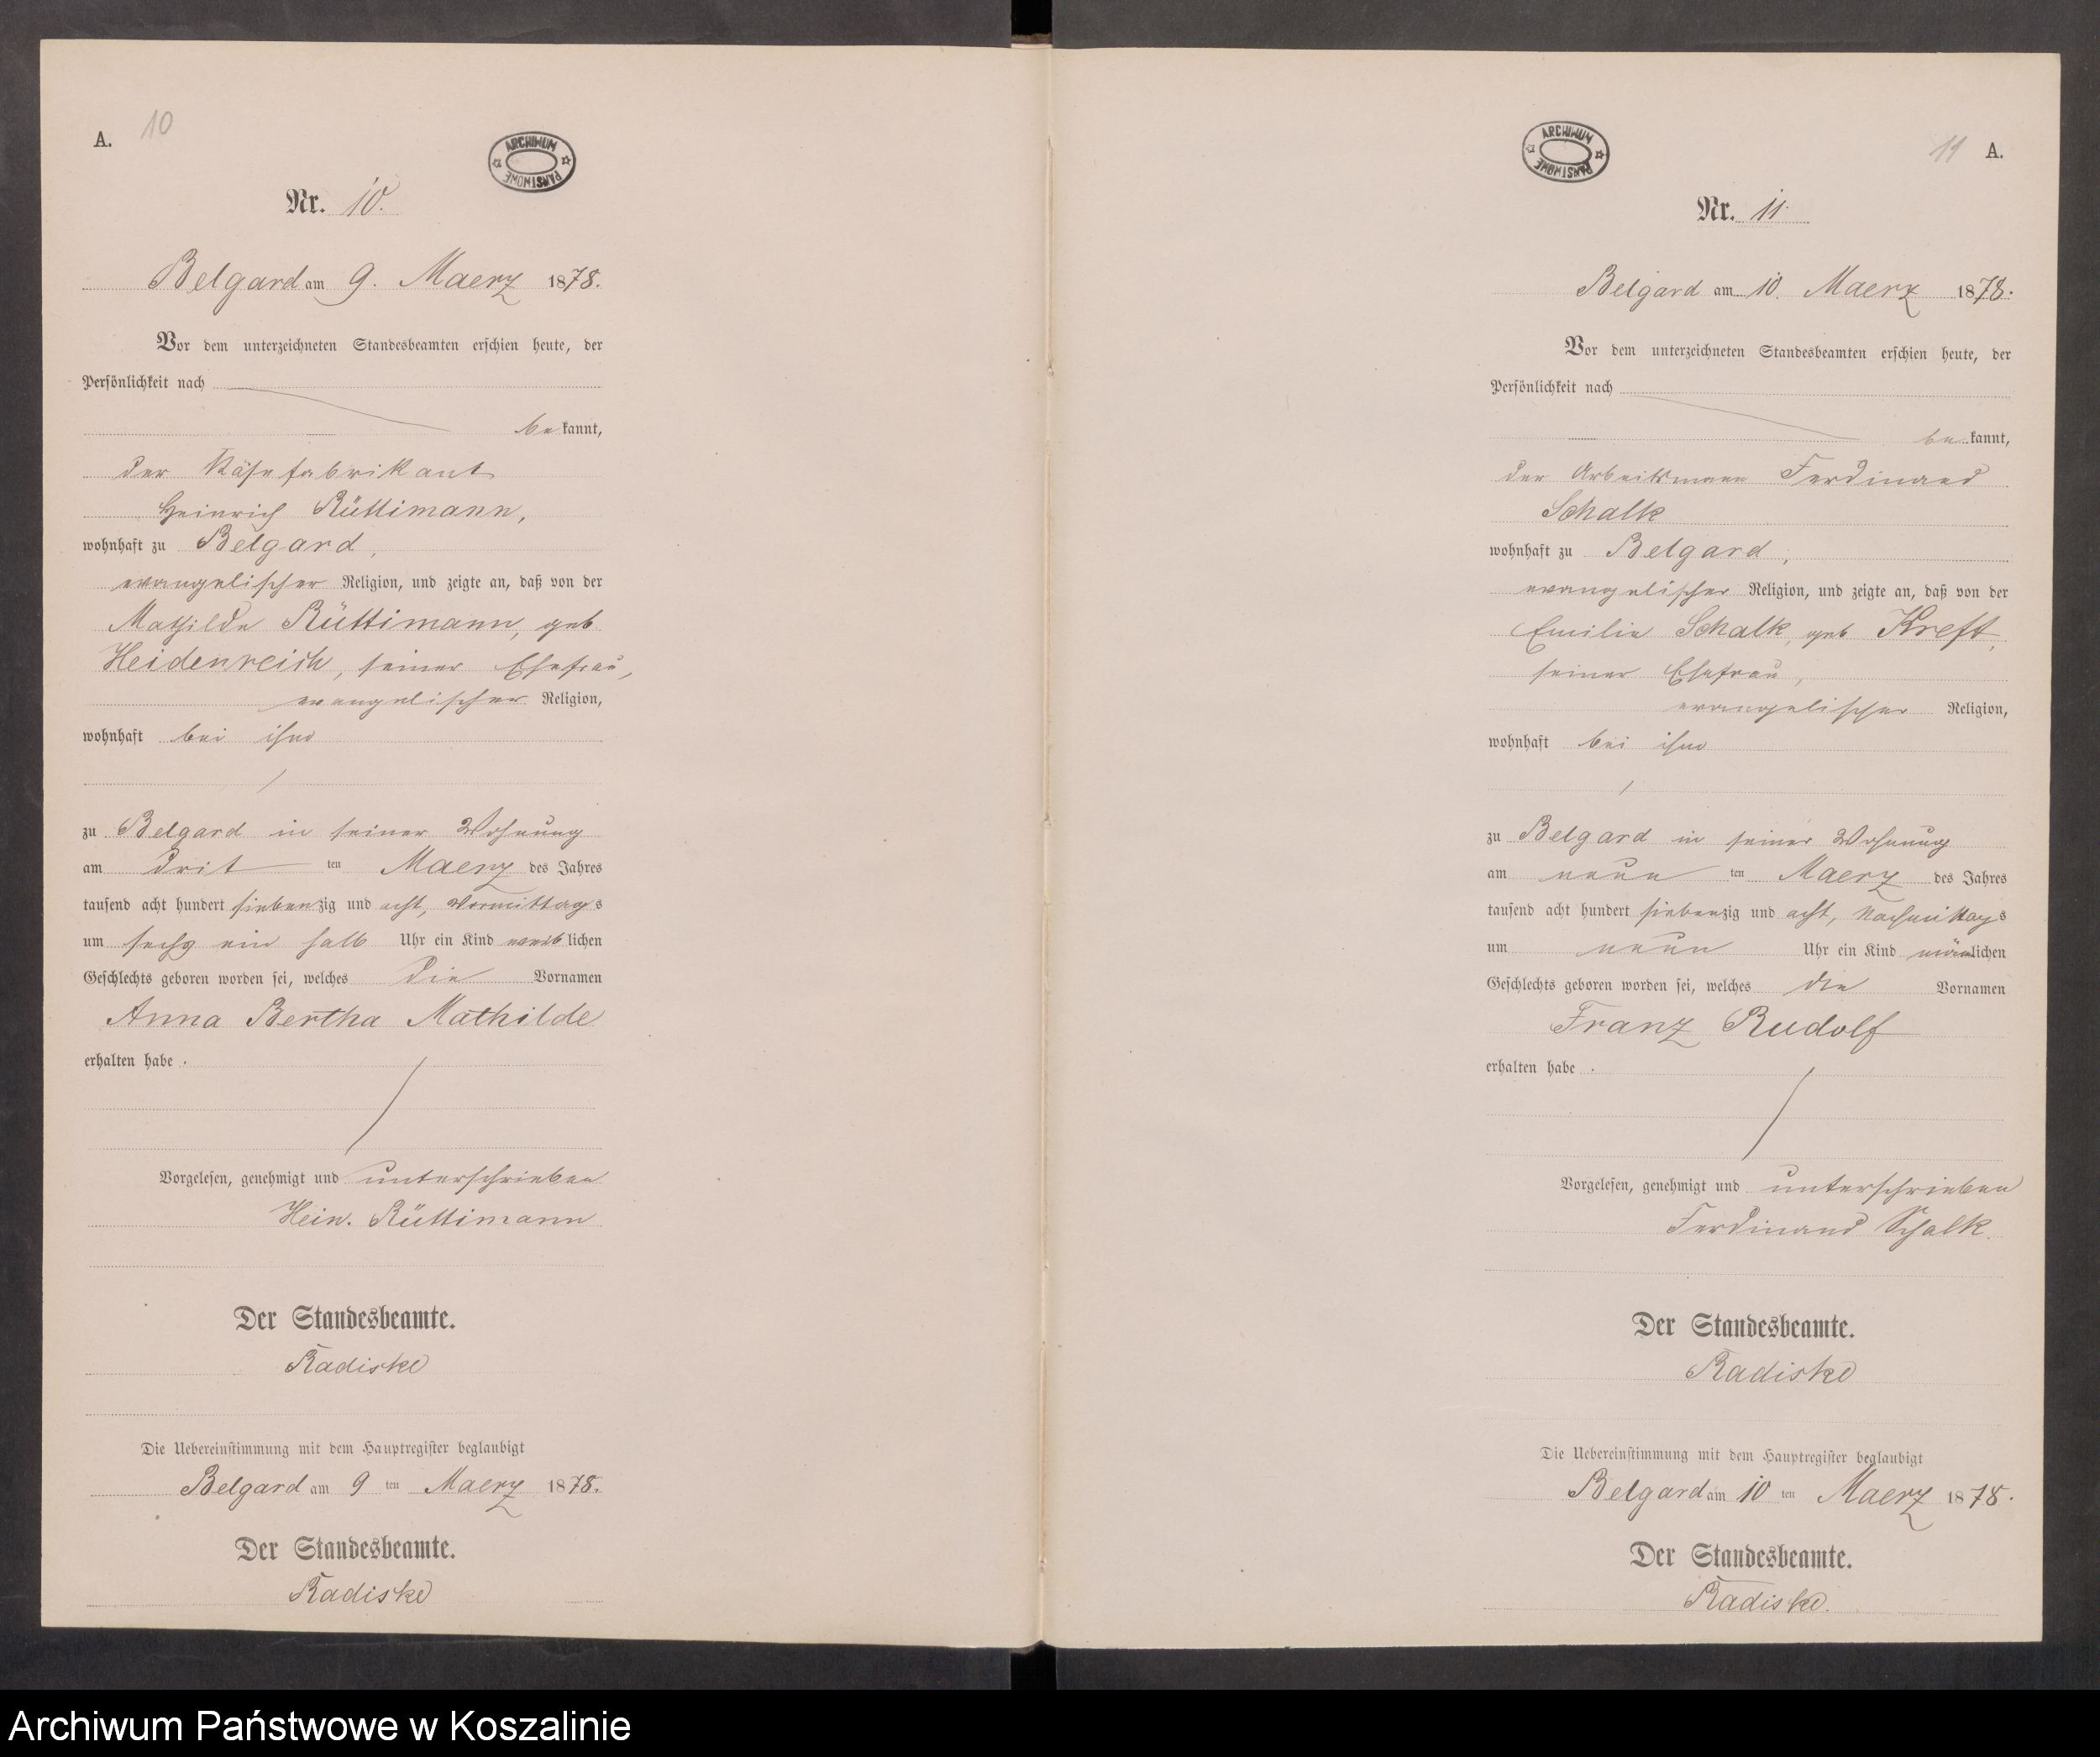 A. 10
ARCHIWUM PAŃSTWOWE
Nr. 10.
Belgard am 9. Maerz 1878.
Vor dem unterzeichneten Standesbeamten erschien heute, der
Persönlichkeit nach
bekannt,
der Käsefabrikant
Heinrich Rüttimann,
wohnhaft zu Belgard,
evangelischer Religion, und zeigte an, daß von der
Mathilde Rüttimann, geb.
Heidenreich, seiner Ehefrau,
evangelischer Religion,
wohnhaft bei ihm
zu Belgard in seiner Wohnung
am drit ten Maerz des Jahres
tausend acht hundert siebenzig und acht, Vormittags
um sechs ein halb Uhr ein Kind weiblichen
Geschlechts geboren worden sei, welches die Vornamen
Anna Bertha Mathilde
erhalten habe.
Vorgelesen, genehmigt und unterschrieben
Hein. Rüttimann
Der Standesbeamte.
Radiske
Die Uebereinstimmung mit dem Hauptregister beglaubigt
Belgard am 9 ten Maerz 1878.
Der Standesbeamte.
Radiske
ARCHIWUM PAŃSTWOWE
11 A.
Nr. 11.
Belgard am 10. Maerz 1878.
Vor dem unterzeichneten Standesbeamten erschien heute, der
Persönlichkeit nach
bekannt,
der Arbeitsmann Ferdinand
Schalk
wohnhaft zu Belgard,
evangelischer Religion, und zeigte an, daß von der
Emilie Schalk, geb. Kreft,
seiner Ehefrau,
evangelischer Religion,
wohnhaft bei ihm
zu Belgard in seiner Wohnung
am neun ten Maerz des Jahres
tausend acht hundert siebenzig und acht, Nachmittags
um neun Uhr ein Kind männlichen
Geschlechts geboren worden sei, welches die Vornamen
Franz Rudolf
erhalten habe.
Vorgelesen, genehmigt und unterschrieben
Ferdinand Schalk.
Der Standesbeamte.
Radiske
Die Uebereinstimmung mit dem Hauptregister beglaubigt
Belgard am 10 ten Maerz 1878.
Der Standesbeamte.
Radiske.
Archiwum Państwowe w Koszalinie